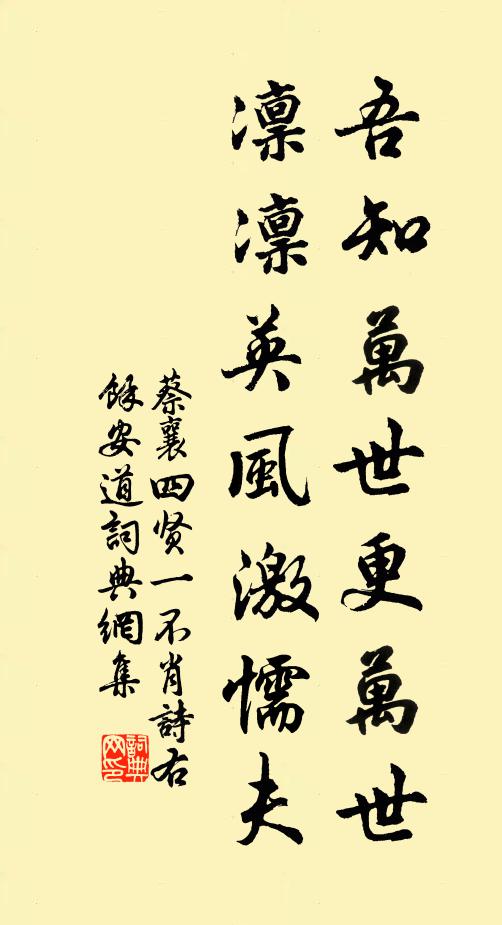 吾知萬世更萬世
凜凜英風激懦夫
蔡襄四贤一不肖詩右
餘安道詞典網集
詞典
网印